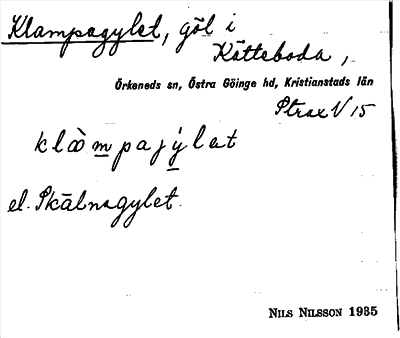 Klampagylet, göl i
Kätteboda,
Örkeneds sn, Östra Göinge hd, Kristianstads län
Strax V 15
klàmpajýlet
el. Skälnagylet.
NILS NILSSON 1935